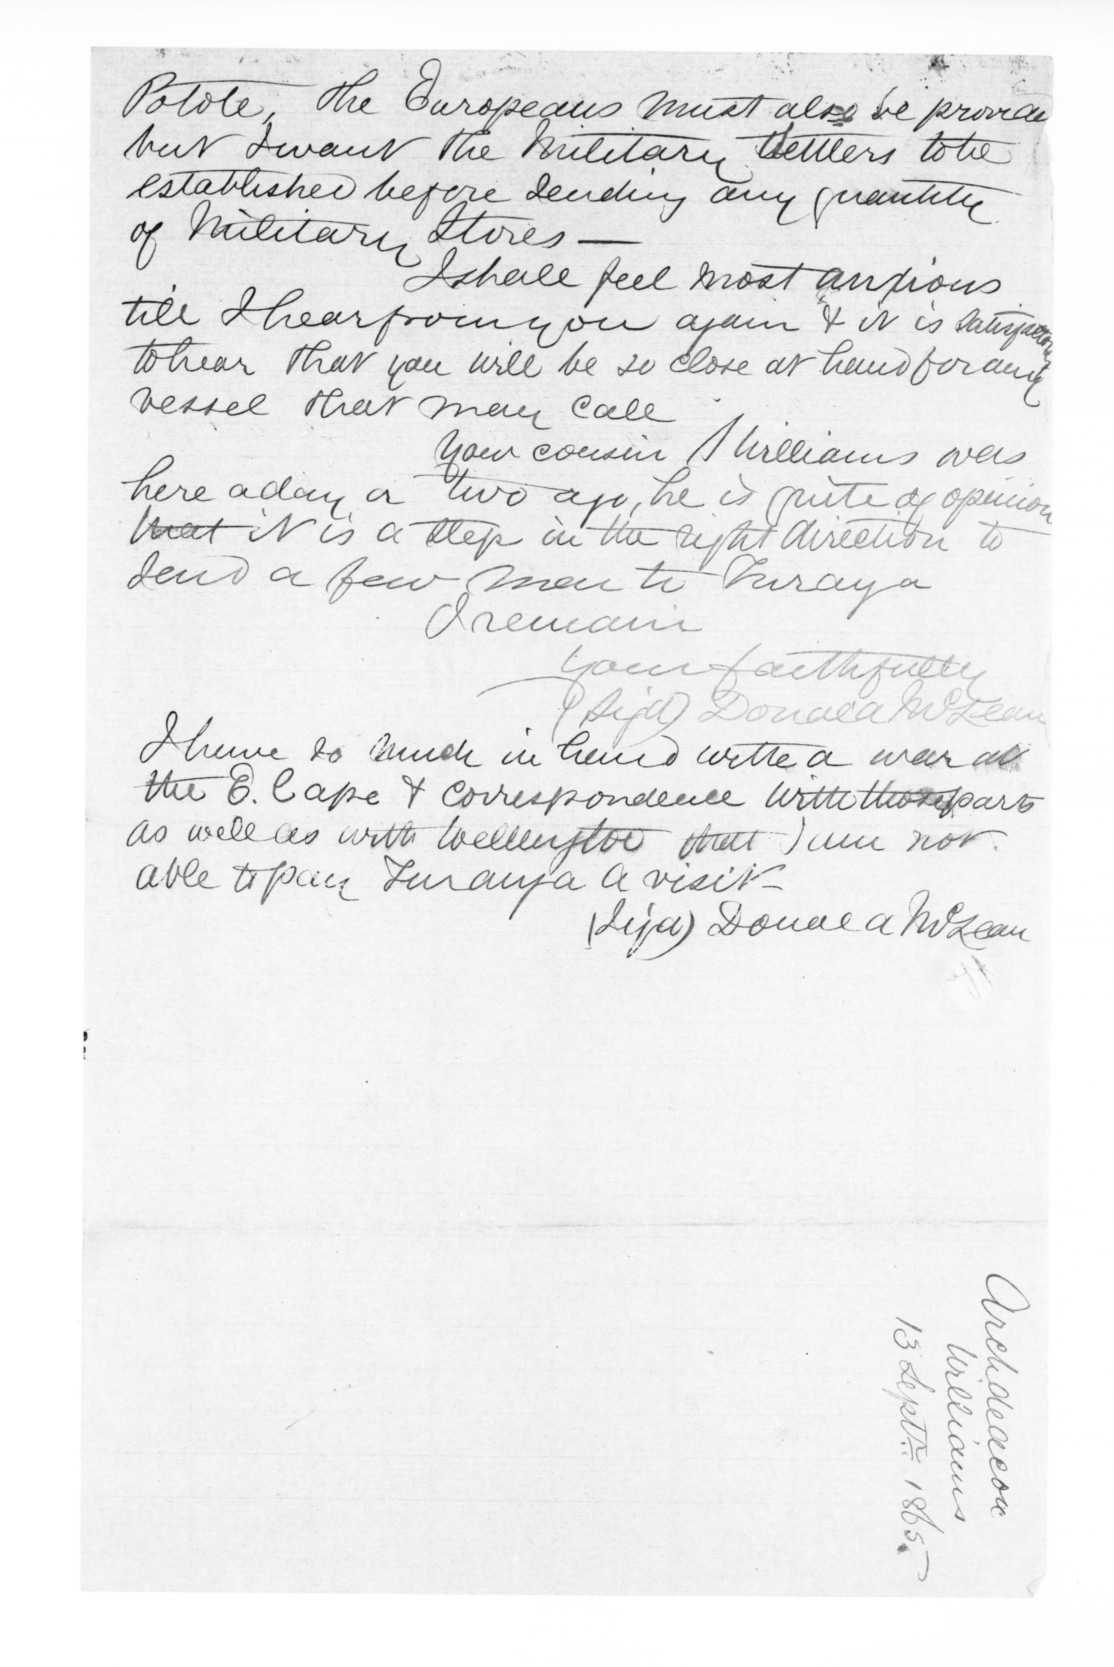 Potote, the Europeans must also be provided
but I want the Military Settlers to be
established before sending any quantity
of Military Stores —
I shall feel most anxious
till I hear from you again & it is satisfactory
to hear that you will be so close at hand for any
vessel that may call
Your cousin J Williams was
here a day or two ago, he is quite of opinion
that it is a step in the right direction to
send a few men to Turanga
I remain
Yours faithfully
(Sigd) Donald McLean
I have so much in hand with a war at
the E. Cape & correspondence with those parts
as well as with Wellington that I am not
able to pay Turanga a visit —
(Sigd) Donald McLean
Archdeacon
Williams
13 Septr. 1865.